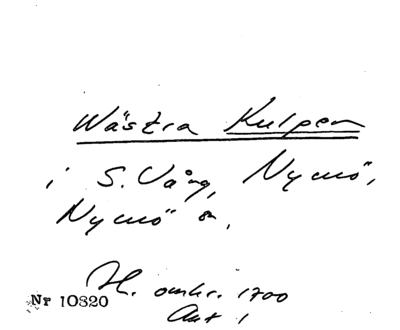 Wästra Kulpen
i S. Vång, Nymö,
Nymö sn,
H. omkr. 1700
Akt 1
Nr 10820